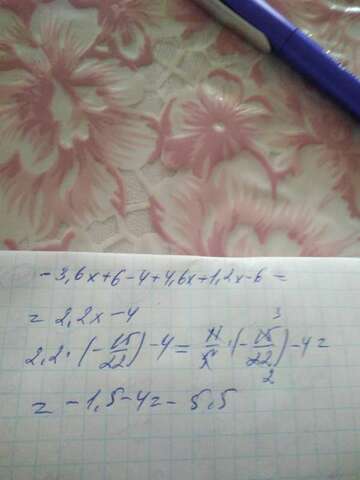 -3,6x+6-4+4,6x+1,2x-6=
= 2,2x-4
2,2·(-15/22)-4= 11/5·(-15/22)-4= 3 2
= -1,5-4=-5,5